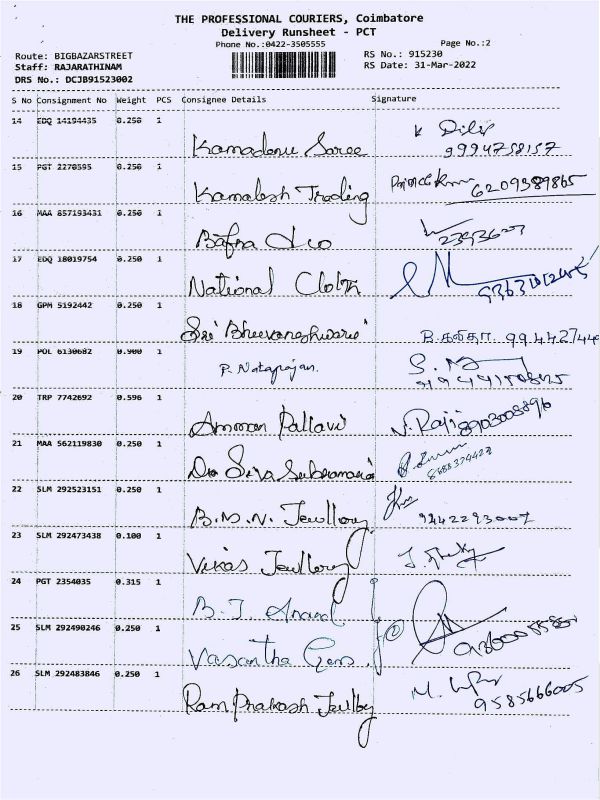 THE PROFESSIONAL COURIERS, Coimbatore
Delivery Runsheet - PCT
Phone No.:0422-3505555 Page No.:2
Route: BIGBAZARSTREET RS No.: 915230
Staff: RAJARATHINAM RS Date: 31-Mar-2022
DRS No.: DCJB91523002
S No Consignment No Weight PCS Consignee Details Signature
14 EDQ 14194435 0.250 1
Kamadenu Saree K Dilip
9994758157
15 PGT 2270595 0.250 1
Kamalesh Trading 6209389865
16 MAA 857193431 0.250 1
Bafna
17 EDQ 18019754 0.250 1
National Cloth
18 GPM 5192442 0.250 1
Sri Bhuvaneshwari B.கவிதா.
19 POL 6130682 0.900 1
P. Natarajan.
20 TRP 7742692 0.596 1
Amman Pallavi N. Raji 8903008896
21 MAA 562119830 0.250 1
Siva Subramania
22 SLM 292523151 0.250 1
B.M.N. Jewllery 9442293007
23 SLM 292473438 0.100 1
Vikas Jewllery
24 PGT 2354035 0.315 1
B.J Anand
25 SLM 292490246 0.250 1
Vasantha Gems
26 SLM 292483846 0.250 1
Ram Prakash Jewllry 9585666005